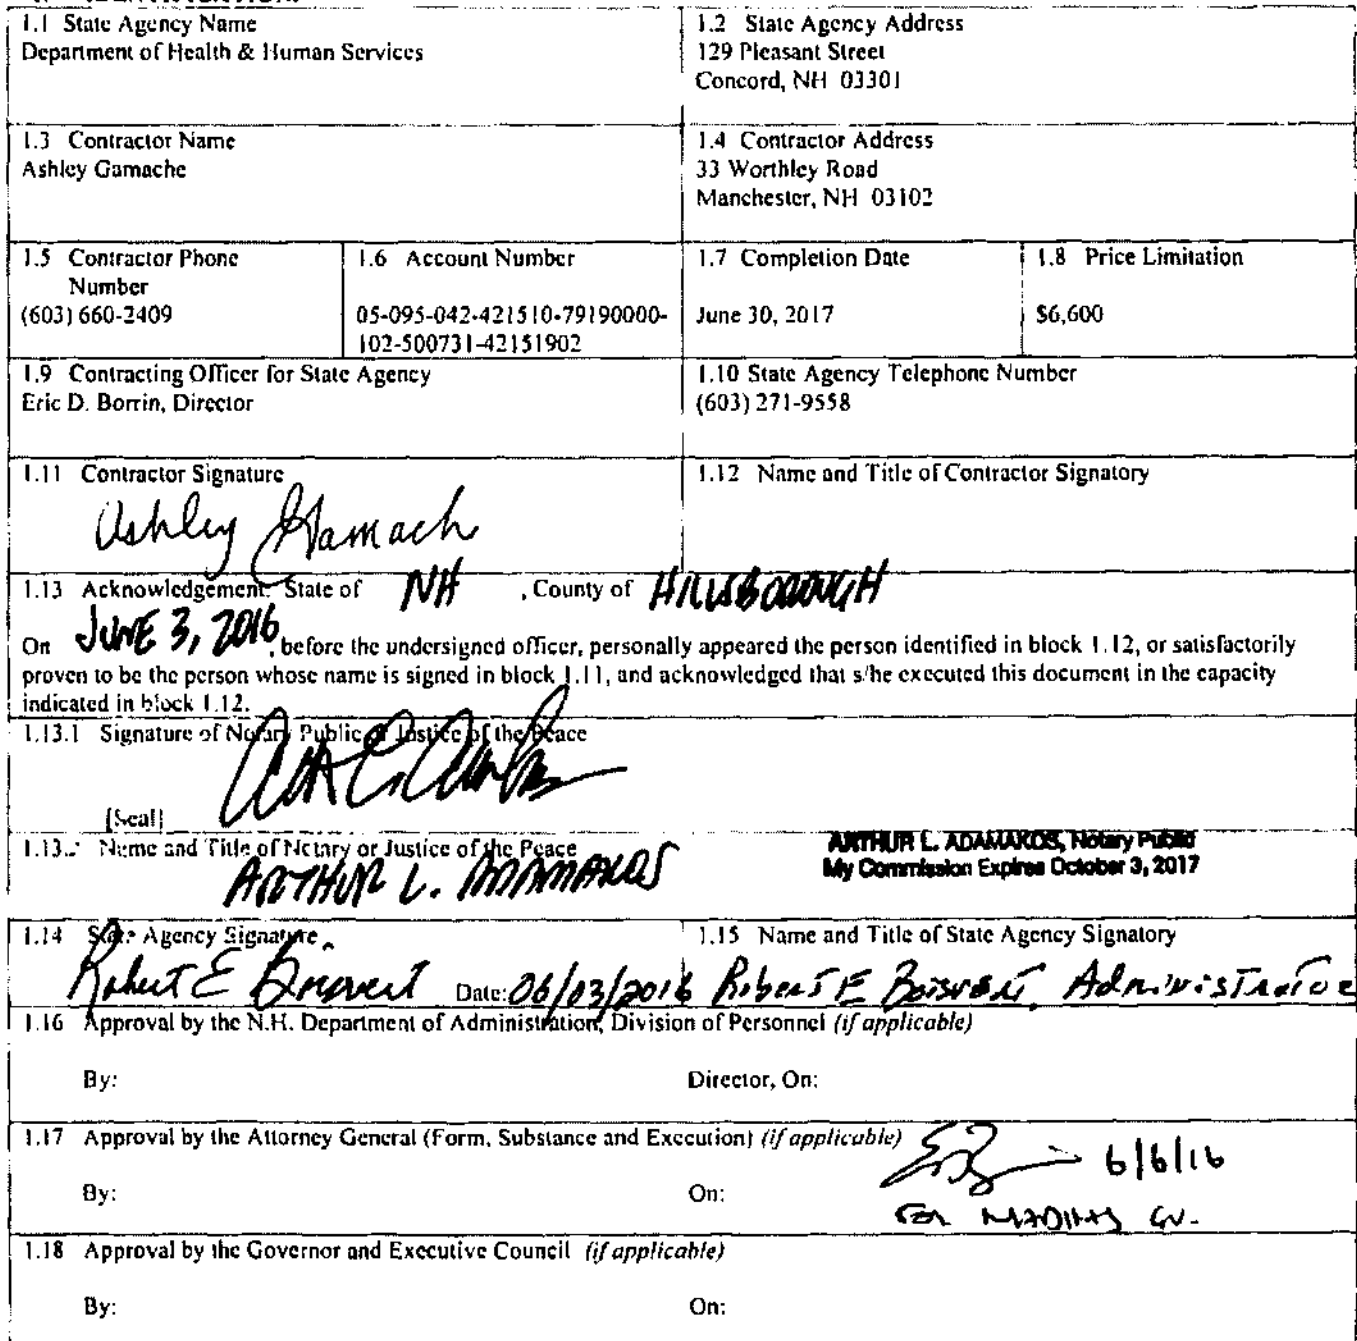 1.1 State Agency Name
Department of Health & Human Services
1.2 State Agency Address
129 Pleasant Street
Concord, NH 03301
1.3 Contractor Name
Ashley Gamache
1.4 Contractor Address
33 Worthley Road
Manchester, NH 03102
1.5 Contractor Phone
Number
(603) 660-2409
1.6 Account Number
05-095-042-421510-79190000-
102-500731-42151902
1.7 Completion Date
June 30, 2017
1.8 Price Limitation
$6,600
1.9 Contracting Officer for State Agency
Eric D. Borrin, Director
1.10 State Agency Telephone Number
(603) 271-9558
1.11 Contractor Signature
Ashley Gamach
1.12 Name and Title of Contractor Signatory
1.13 Acknowledgement: State of NH , County of HILLSBOROUGH
On JUNE 3, 2016, before the undersigned officer, personally appeared the person identified in block 1.12, or satisfactorily
proven to be the person whose name is signed in block 1.11, and acknowledged that s/he executed this document in the capacity
indicated in block 1.12.
1.13.1 Signature of Notary Public or Justice of the Peace
[Seal]
1.13.2 Name and Title of Notary or Justice of the Peace
ARTHUR L. ADAMAKOS
ARTHUR L. ADAMAKOS, Notary Public
My Commission Expires October 3, 2017
1.14 State Agency Signature
Robert E Boisvert Date: 06/03/2016
1.15 Name and Title of State Agency Signatory
Robert E Boisvert, Administrator
1.16 Approval by the N.H. Department of Administration, Division of Personnel (if applicable)
By: Director, On:
1.17 Approval by the Attorney General (Form, Substance and Execution) (if applicable)
6/6/16
By: On:
1.18 Approval by the Governor and Executive Council (if applicable)
By: On: